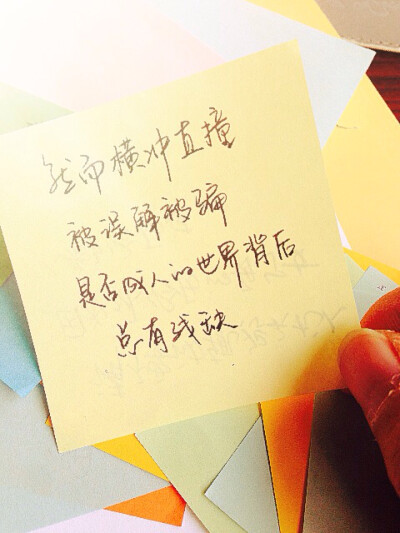 然而横冲直撞
被误解被骗
是否成人的世界背后
总有残缺